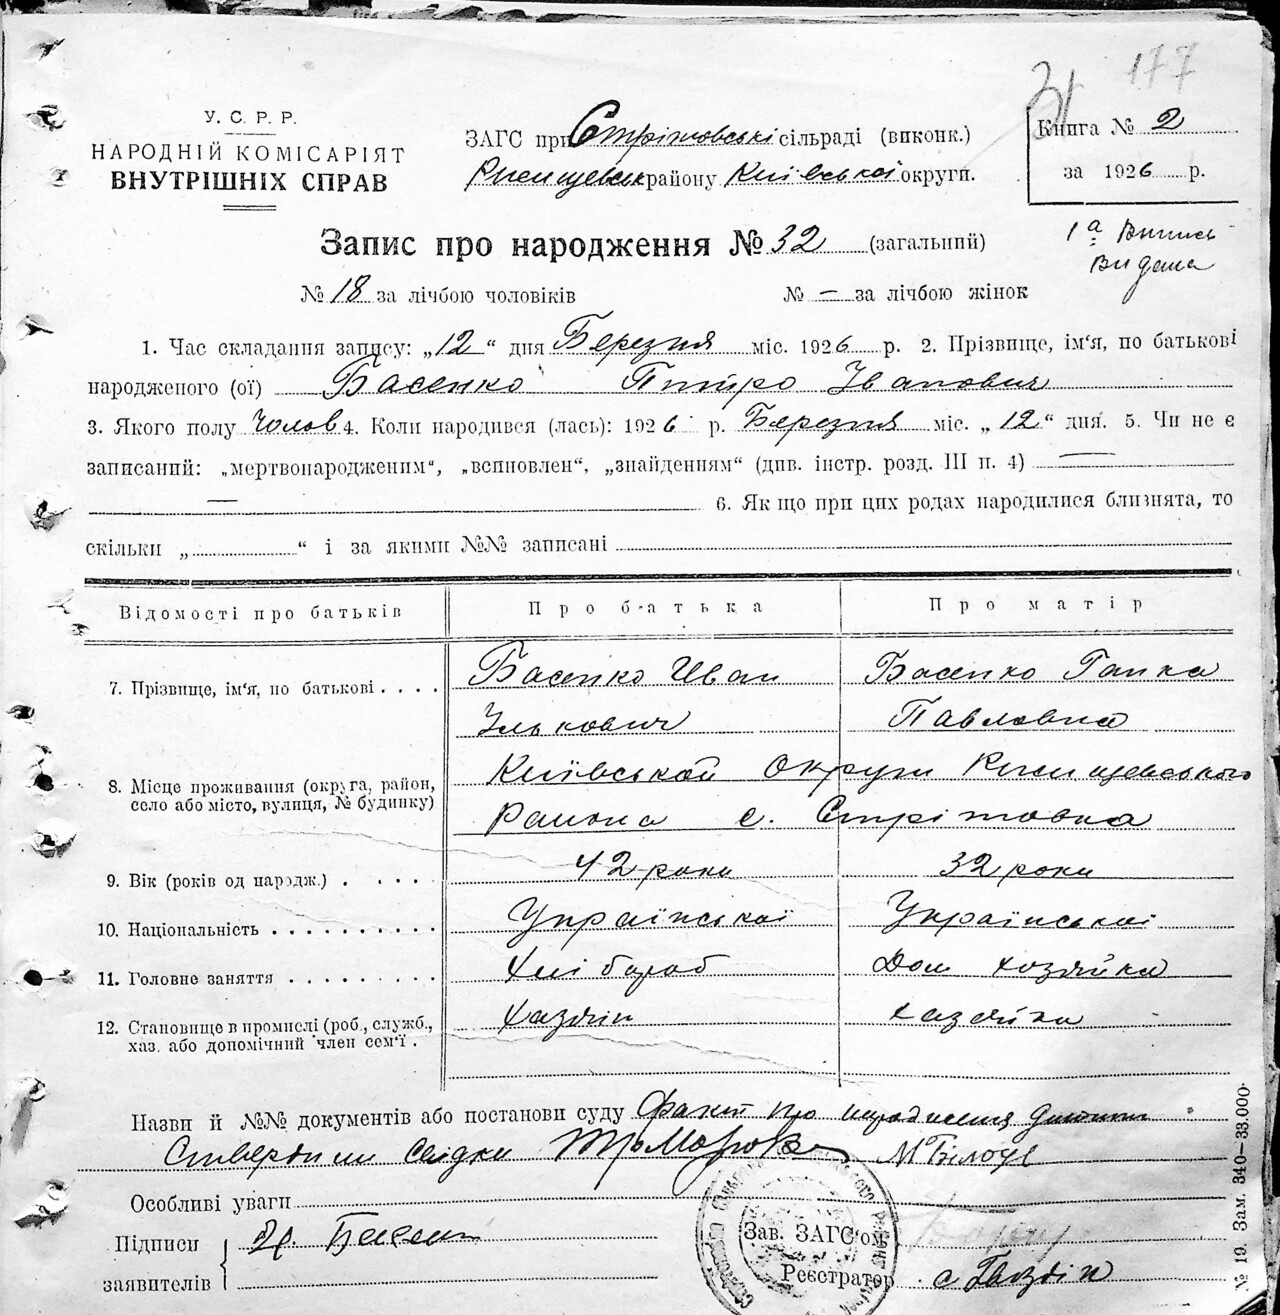 177
31
У. С. Р. Р.
НАРОДНІЙ КОМІСАРІЯТ
ВНУТРІШНІХ СПРАВ
ЗАГС при Стрітовські сільраді (виконк.)
Ржищевськ району Київської округи.
Книга № 2
за 1926 р.
Запис про народження № 32 (загальний)
1а Випись
видана
№ 18 за лічбою чоловіків № — за лічбою жінок
1. Час складання запису: „12“ дня Березня міс. 1926 р. 2. Прізвище, ім'я, по батькові
народженого (ої) Басенко Питро Іванович
3. Якого полу Чолов 4. Коли народився (лась): 1926 р. Березня міс. „12“ дня. 5. Чи не є
записаний: „мертвонародженим“, „вспновлен“, „знайденням“ (див. інстр. розд. III п. 4) —
— 6. Як що при цих родах народилися близнята, то
скільки „ “ і за якими №№ записані
Відомості про батьків Про батька Про матір
7. Прізвище, ім'я, по батькові . . . . Басенко Иван Басенко Гапка
Улькович Павловна
8. Місце проживання (округа, район,
село або місто, вулиця, № будинку)
Київськой Округи Ржищевського
Района с. Стрітовка
9. Вік (років од народж.) . . . . 42 роки 32 роки
10. Національність . . . . . . . . . . Української Української
11. Головне заняття . . . . . . . . . Хлібороб Дом хозяйка
12. Становище в промислі (роб., служб.,
хаз. або допомічний член сем'ї . Хазяїн хазяйка
Назви й №№ документів або постанови суду Факт про народження дитини
Ствердили свідки М Білоус
Особливі уваги
Підписи
заявителів
Басен
Зав. ЗАГС'ом
Реєстратор с Гвоздік
№ 19. Зам. 340—33.000.